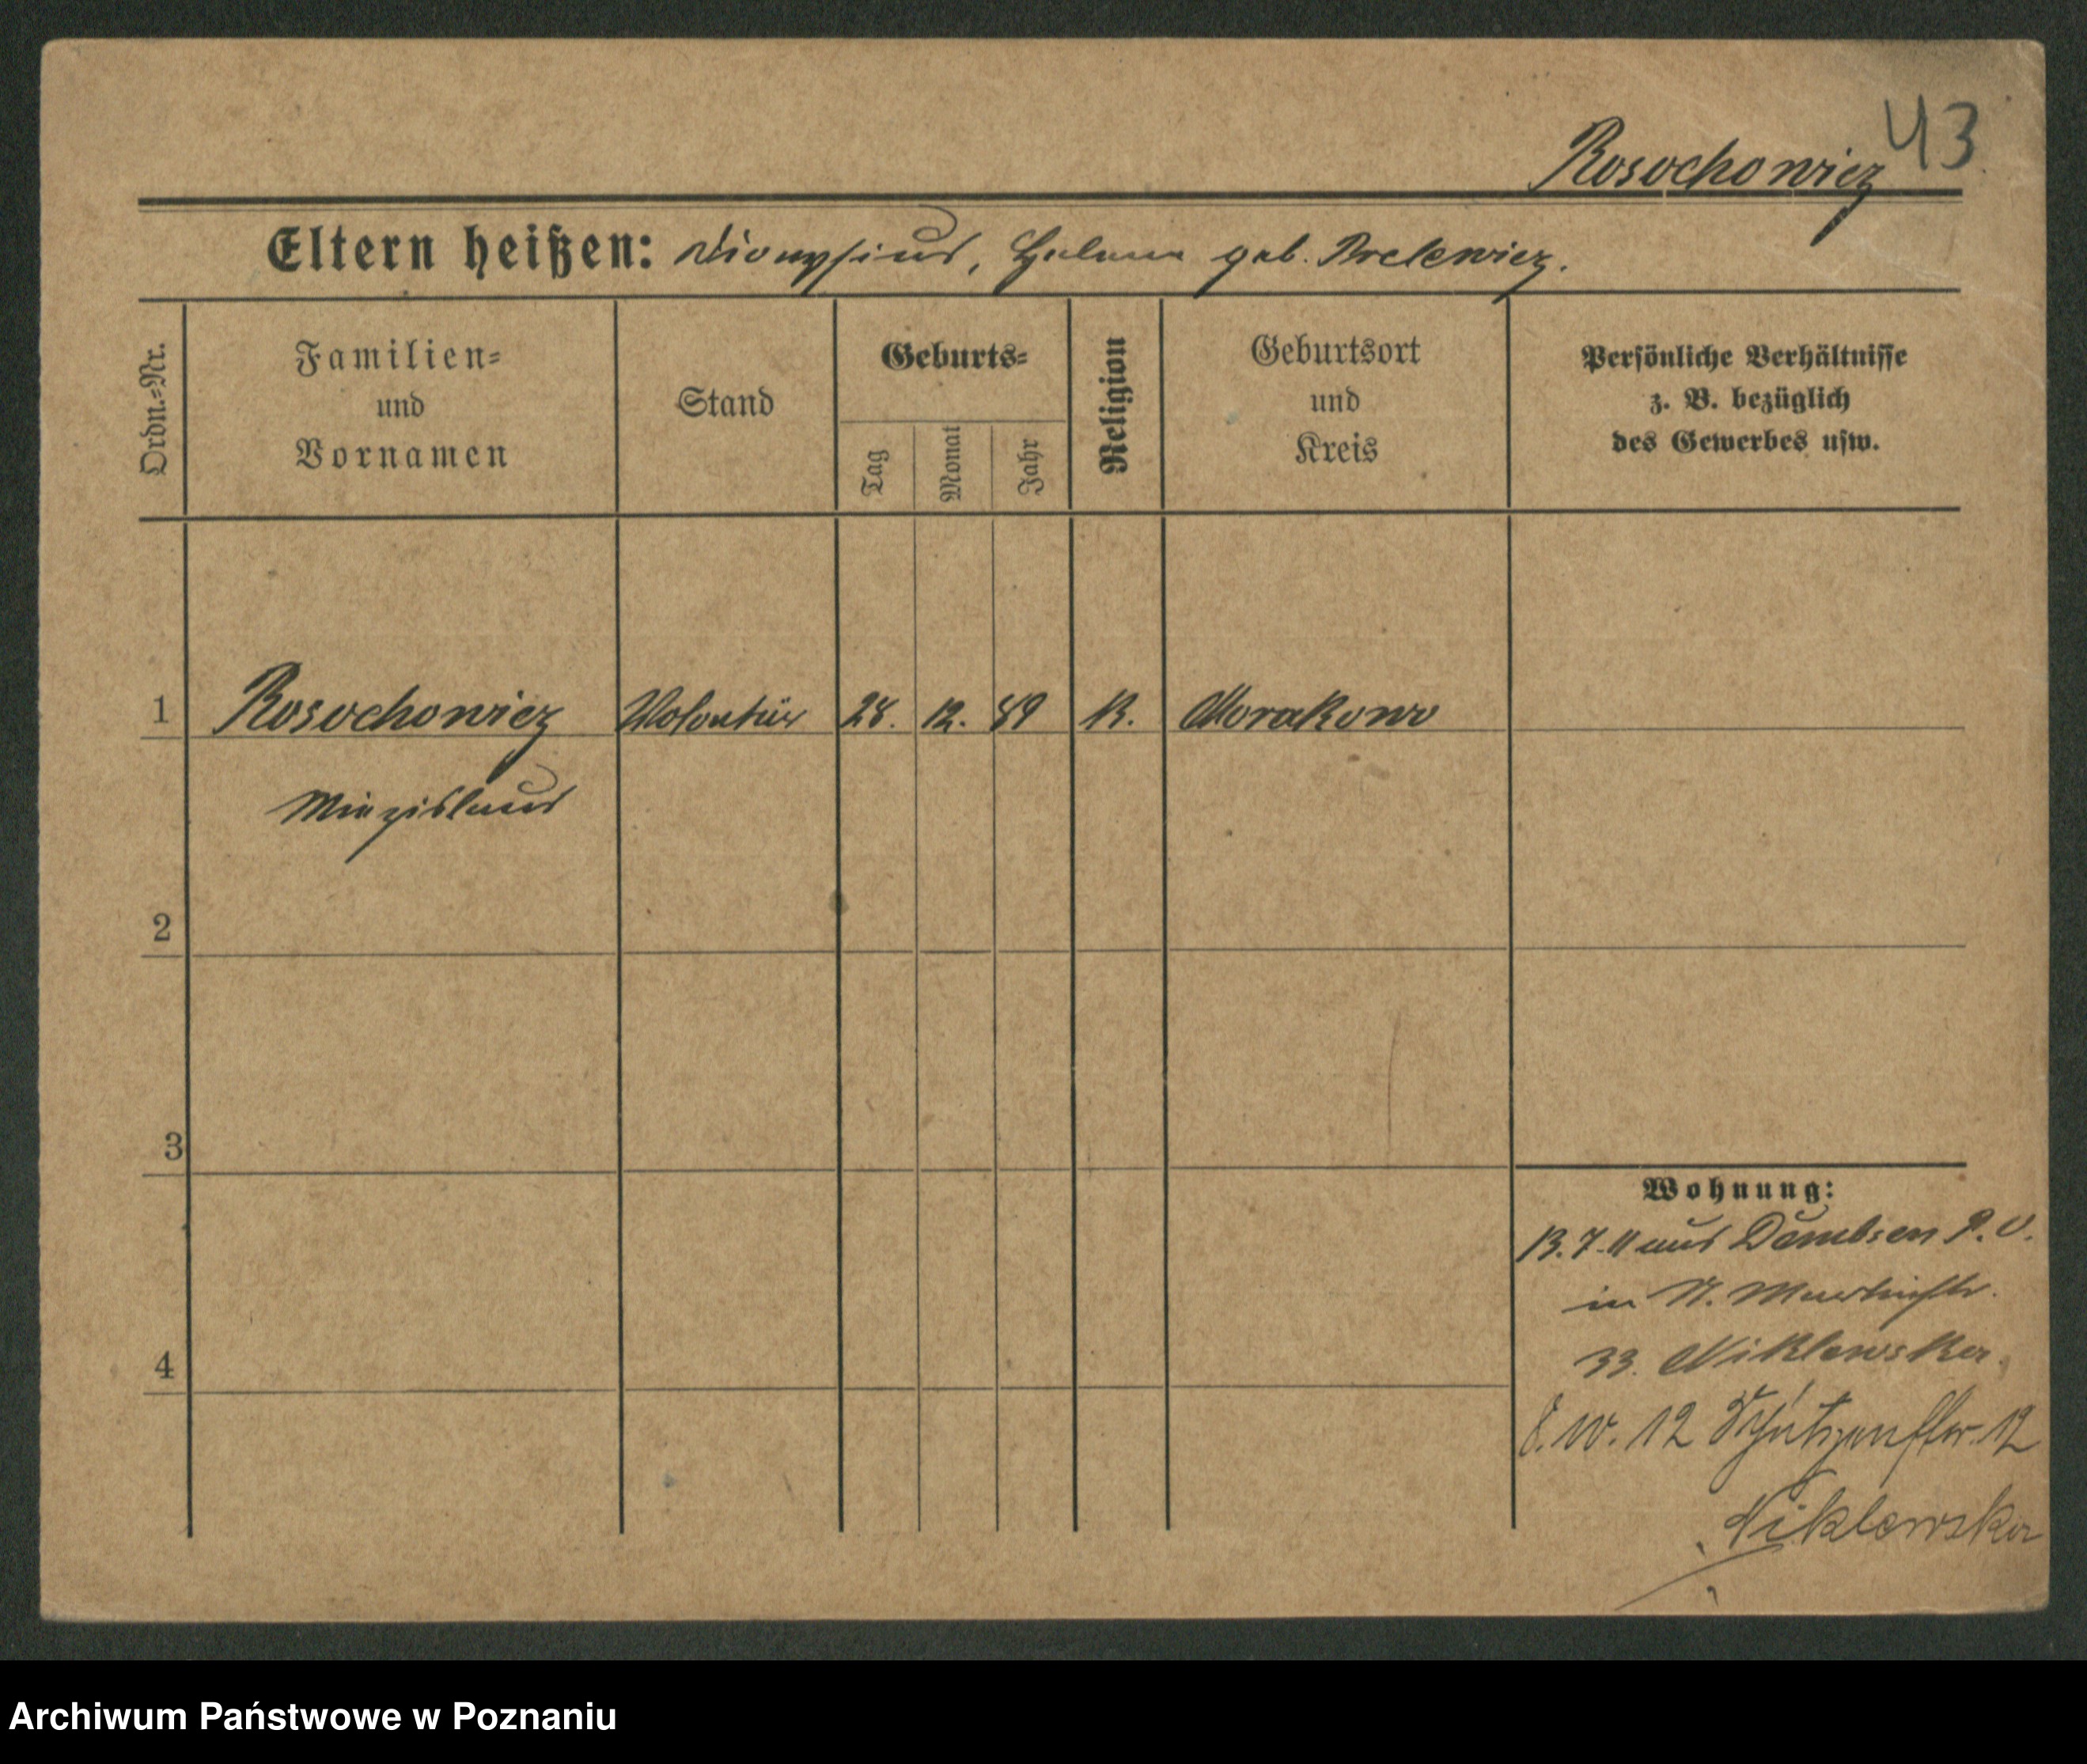 43
Rosochowicz
Eltern heißen: Dionysius, Helena geb. Brelewicz.
Ordn.=Nr.
Familien=
und
Vornamen
Stand
Geburts=
Tag
Monat
Jahr
Religion
Geburtsort
und
Kreis
Persönliche Verhältnisse
z. B. bezüglich
des Gewerbes usw.
1 Rosochowicz Volontär 28. 12. 89 K. Morakowo
Miezislaus
2
3
4
Wohnung:
13. 7. 11 aus Dembsen P. O.
in St. Martinstr.
33. Niklewska.
8. 10. 12 Schützenstr. 12
Niklewska
Archiwum Państwowe w Poznaniu